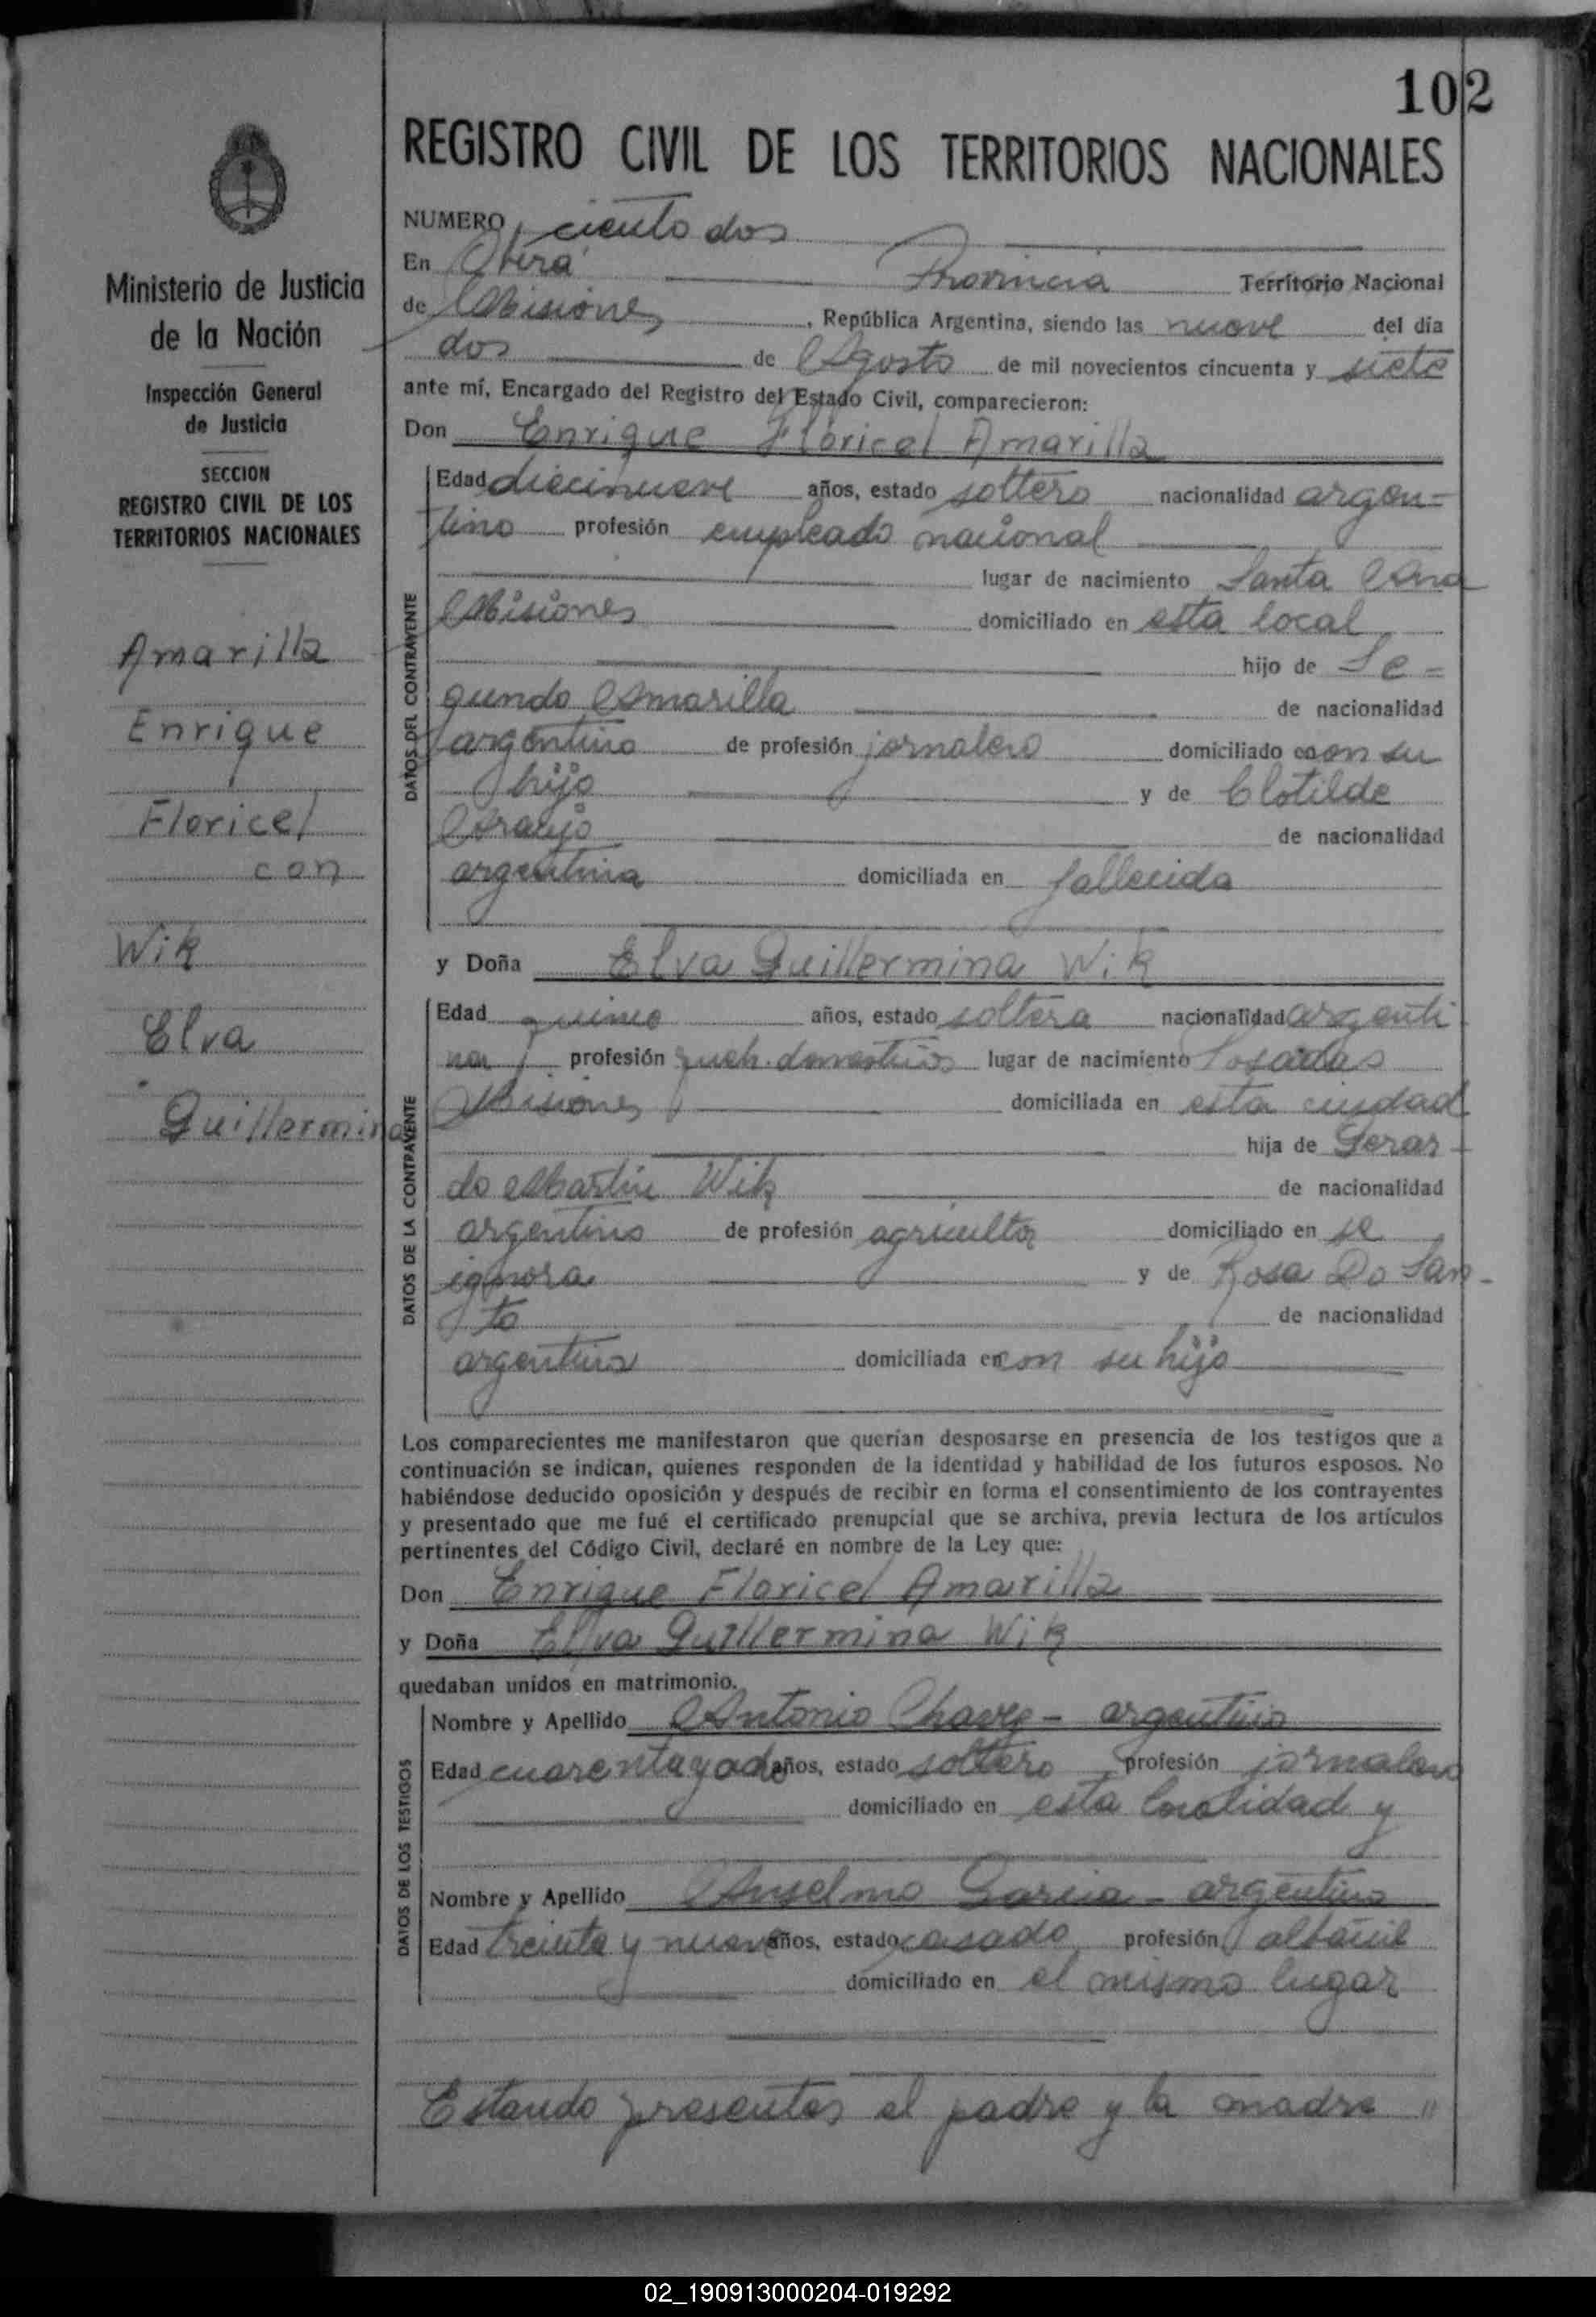 102
REGISTRO CIVIL DE LOS TERRITORIOS NACIONALES
Ministerio de Justicia
de la Nación
Inspección General
de Justicia
SECCION
REGISTRO CIVIL DE LOS
TERRITORIOS NACIONALES
Amarilla
Enrique
Floricel
con
Wik
Elva
Guillermina
NUMERO ciento dos
En Oberá Provincia Territorio Nacional
de Misiones, República Argentina, siendo las nueve del día
dos de Agosto de mil novecientos cincuenta y siete
ante mí, Encargado del Registro del Estado Civil, comparecieron:
Don Enrique Floricel Amarilla
DATOS DEL CONTRAYENTE
Edad diecinueve años, estado soltero nacionalidad argen=
tino profesión empleado nacional
lugar de nacimiento Santa Ana
Misiones domiciliado en esta local
hijo de Se=
gundo Amarilla de nacionalidad
argentino de profesión jornalero domiciliado con su
hijo y de Clotilde
Araujo de nacionalidad
argentina domiciliada en fallecida
y Doña Elva Guillermina Wik
DATOS DE LA CONTRAYENTE
Edad quince años, estado soltera nacionalidad argenti
na profesión queh. domesticos lugar de nacimiento Posadas
Misiones domiciliada en esta ciudad
hija de Gerar-
do Martin Wik de nacionalidad
argentino de profesión agricultor domiciliado en se
ignora y de Rosa Do San-
to de nacionalidad
argentina domiciliada en con su hijo
Los comparecientes me manifestaron que querían desposarse en presencia de los testigos que a
continuación se indican, quienes responden de la identidad y habilidad de los futuros esposos. No
habiéndose deducido oposición y después de recibir en forma el consentimiento de los contrayentes
y presentado que me fué el certificado prenupcial que se archiva, previa lectura de los artículos
pertinentes del Código Civil, declaré en nombre de la Ley que:
Don Enrique Floricel Amarilla
y Doña Elva Guillermina Wik
quedaban unidos en matrimonio.
DATOS DE LOS TESTIGOS
Nombre y Apellido Antonio Chavez - argentino
Edad cuarenta y dos años, estado soltero profesión jornalero
domiciliado en esta localidad y
Nombre y Apellido Anselmo Garcia - argentino
Edad treinta y nueve años, estado casado profesión albañil
domiciliado en el mismo lugar
Estando presentes el padre y la madre "
02_190913000204-019292